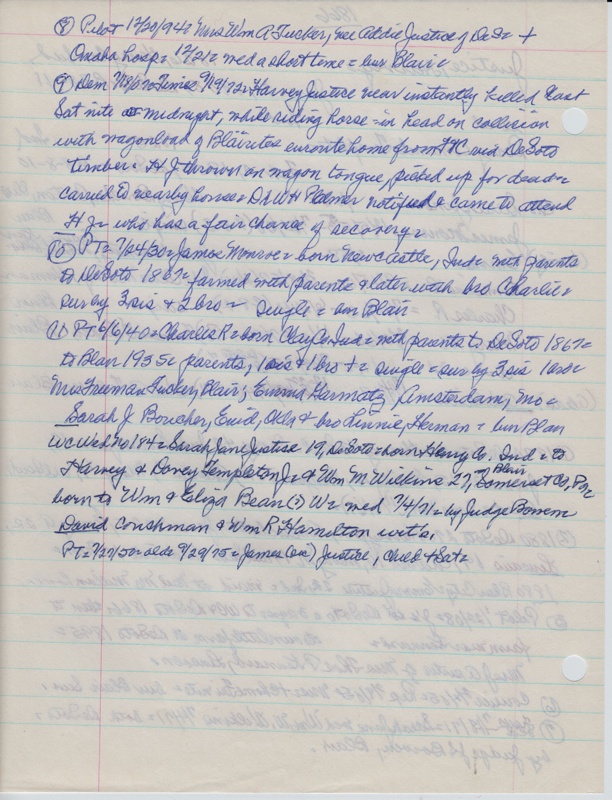 (8) Pilot 12/20/94= Mrs Wm A Tucker, nee Addie Justice of DeSo= +
Omaha hosp= 12/21= med a short time= bur Blair=
(9) Dem Times 9/19/72= Harvey Justice near instantly killed last
Sat nite midnight, while riding horse= in head on collision
with wagonload of Blairites enroute home from FtC via DeSoto
timber= HJ thrown on wagon tongue, picked up for dead=
carried to nearby house= Dr WH Palmer notified & came to attend
HJ= who has a fair chance of recovery=
(10) PT= 7/24/30= James Monroe= born Newcastle, Ind= with parents
to DeSoto 1867= farmed with parents & later with bro Charlie=
sur by 3 sis & 2 bro= single= bur Blair
(11) PT 6/6/40= Charles R= born Clay Co Ind= with parents to DeSoto 1867=
to Blair 1935= parents, 1 sis & 1 bro += single= sur by 3 sis 1 bro=
Mrs Truman Tucker, Blair; Emma Hermatz, Amsterdam, Mo=
Sarah J. Boucher, Enid, Okla & bro Linnie, Herman= bur Blair
WC Wed No 184= Sarah Jane Justice 19, DeSoto= born Henry Co. Ind= to
Harvey & Dovey Templeton J= & Wm M Wilkins 27, Blair Somerset Co, Pa=
born to Wm & Eliza Bean (?) W= med 7/4/71= by Judge Bowen=
David Couchman & Wm R Hamilton witn.
PT= 7/27/50= olds 9/29/75= James (sic) Justice, child + Sat=